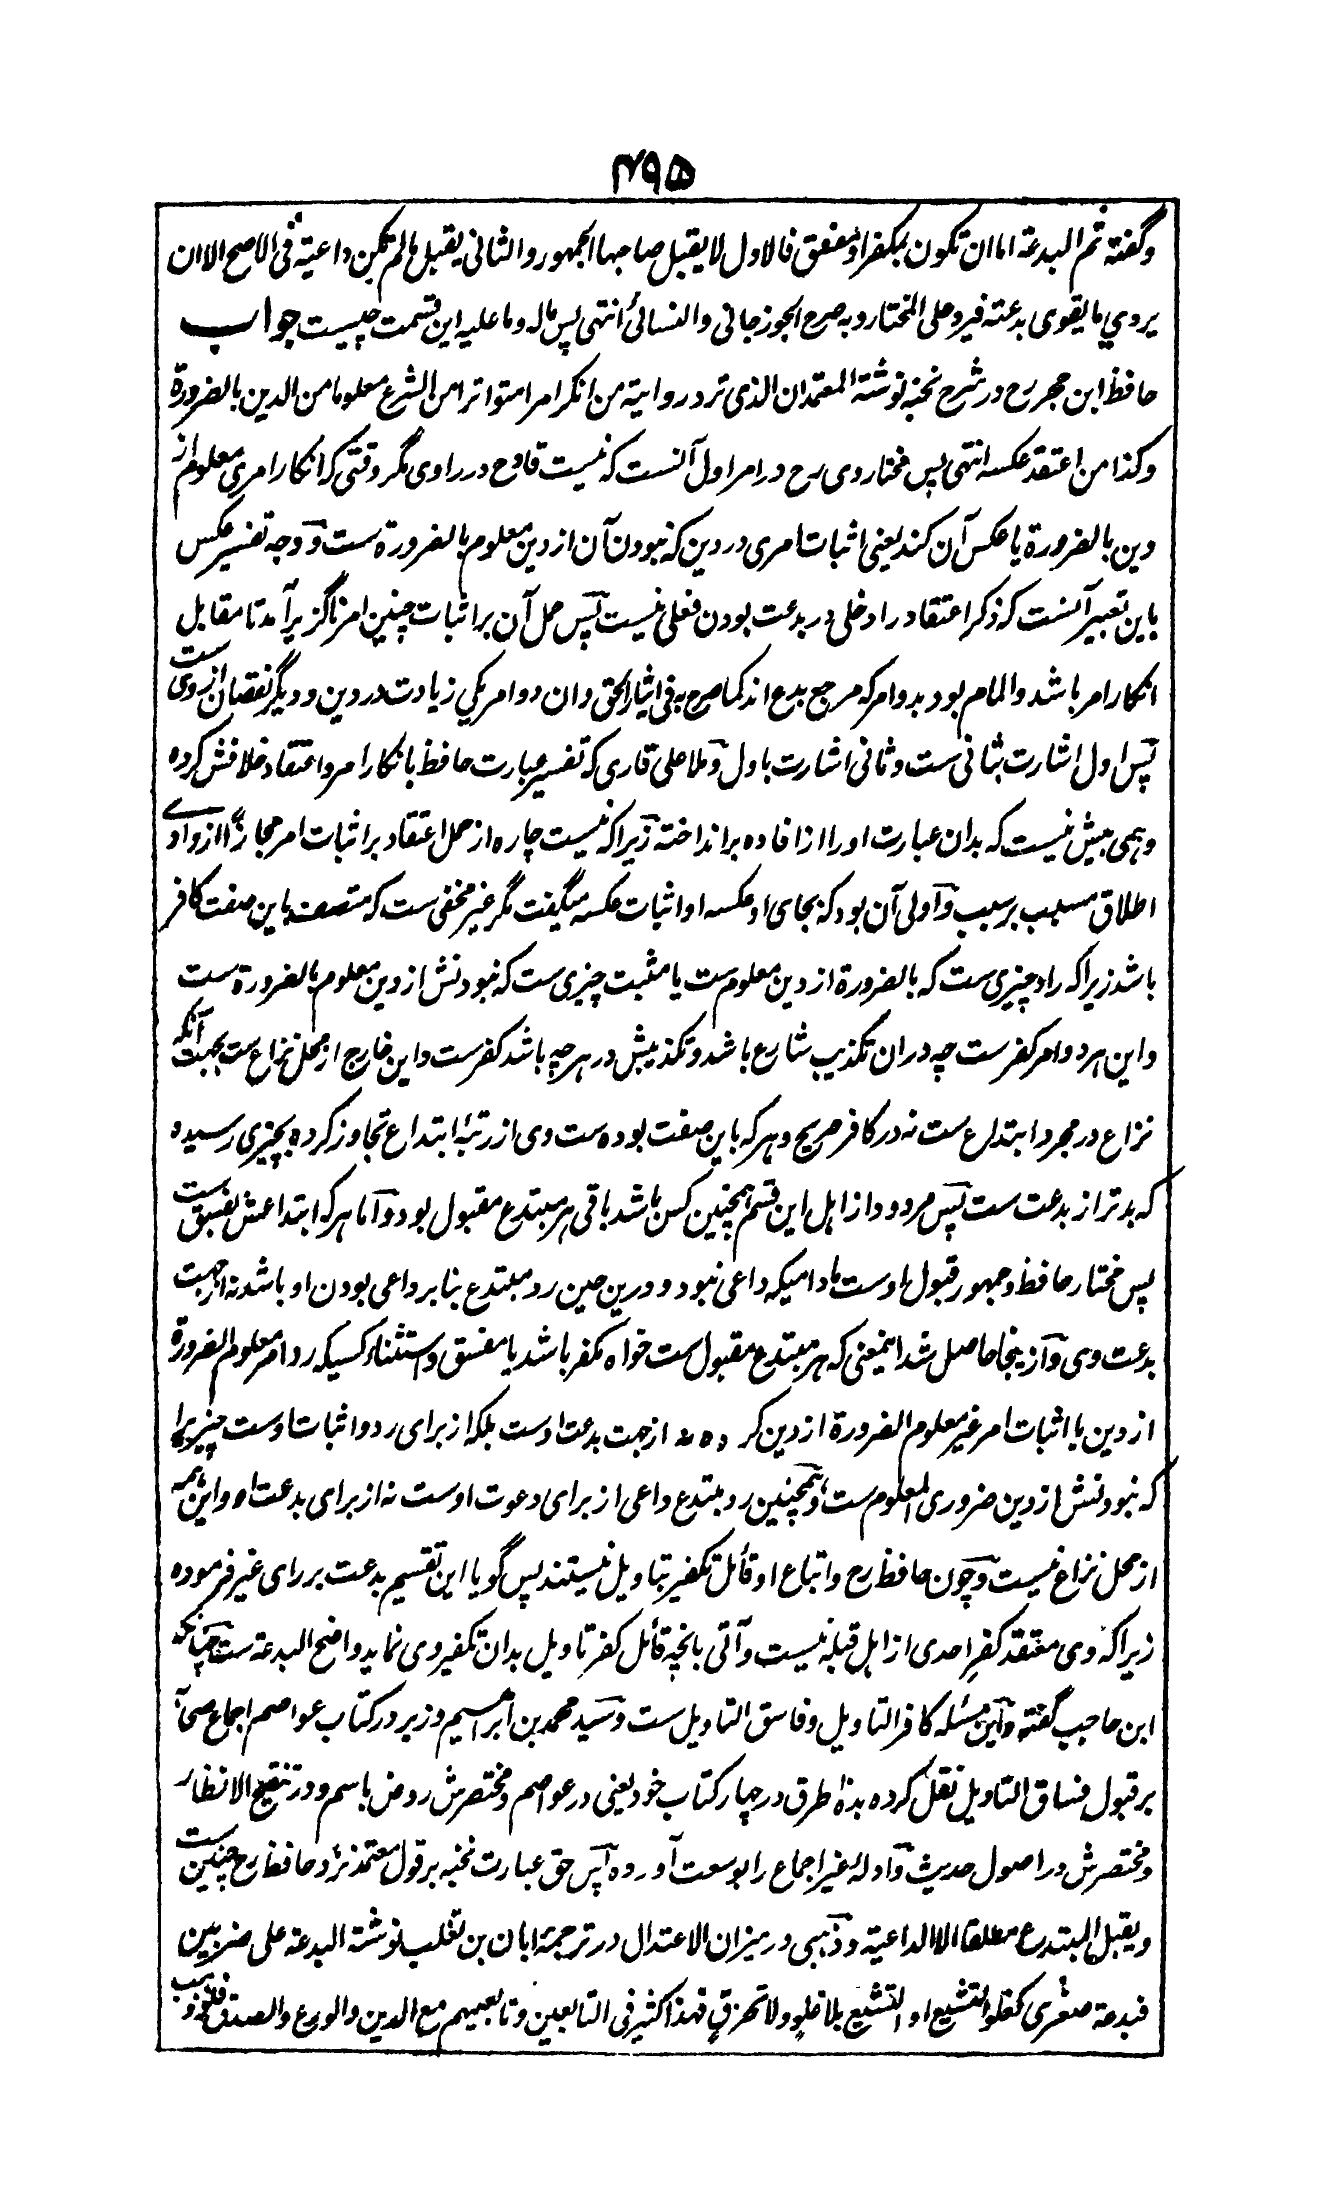 ۴۹۵
وگفته ثم البدعة اما ان تکون بمکفر او بمفسق فالاول لا یقبل صاحبها الجمهور والثانی یقبل مالم تکن داعیة فی الاصح الا ان
یروی ما یقوی بدعته فیرد علی المختار وبه صرح الجوزجانی والنسائی انتهی پس ماله وما علیه این قسمت چیست جواب
حافظ ابن حجر رح در شرح نخبه نوشته المعتمد ان الذی ترد روایته من انکر امرا متواترا من الشرع معلوما من الدین بالضرورة
وکذا من اعتقد عکسه انتهی پس مختار وی رح در امر اول آنست که نیست قادح در راوی مگر وقتی که انکار امری معلوم از
دین بالضرورة یا عکس آن کند یعنی اثبات امری در دین که نبودن آن از دین معلوم بالضرورة ست و وجه تفسیر عکس
باین تعبیر آنست که ذکر اعتقاد را دخلی در بدعت بودن فعلی نیست پس حمل آن بر اثبات چنین امر ناگزیر آمد تا مقابل
انکار امر باشد والمام بود بدو امر که مرجع بدع اند کما صرح به فی ایثار الحق وان دو امر یکی زیادت در دین و دیگر نقصان از وی ست
پس اول اشارت بثانی ست و ثانی اشارت باول و ملا علی قاری که تفسیر عبارت حافظ بانکار امر و اعتقاد خلافش کرده
وهمی بیش نیست که بدان عبارت او را از افاده برانداخته زیرا که نیست چاره از حمل اعتقاد بر اثبات امر مجازاً از وادی
اطلاق مسبب بر سبب و اولی آن بود که بجای او عکسه او اثبات عکسه میگفت مگر غیر مخفی ست که متصف باین صفت کافر
باشد زیرا که راد چیزی ست که بالضرورة از دین معلوم ست یا مثبت چیزی ست که نبودنش از دین معلوم بالضرورة ست
و این هر دو امر کفرست چه دران تکذیب شارع باشد و تکذیبش در هر چه باشد کفرست و این خارج از محل نزاع ست بجهت آنکه
نزاع در مجرد ابتداع ست نه در کافر صریح و هر که باین صفت بوده ست وی از رتبهٔ ابتداع تجاوز کرده بچیزی رسیده
که بدتر از بدعت ست پس مردود از اهل این قسم همچنین کس باشد باقی هر مبتدع مقبول بود و اما هر که ابتداعش بفسق ست
پس مختار حافظ و جمهور قبول اوست مادامیکه داعی نبود و درین حین رد مبتدع بنابر داعی بودن او باشد نه از جهت
بدعت وی و ازینجا حاصل شد اینمعنی که هر مبتدع مقبول ست خواه مکفر باشد یا مفسق و استثناء کسیکه رد امر معلوم الضرورة
از دین یا اثبات امر غیر معلوم الضرورة از دین کرده نه از جهت بدعت اوست بلکه از برای رد و اثبات اوست چیزی را
که نبودنش از دین ضروری المعلوم ست و همچنین رد مبتدع داعی از برای دعوت اوست نه از برای بدعت او و این همه
از محل نزاع نیست و چون حافظ رح و اتباع او قائل تکفیر بتاویل نیستند پس گویا این تقسیم بدعت بر رای غیر فرموده
زیرا که وی معتقد کفر احدی از اهل قبله نیست و آتی بانچه قائل کفر تاویل بدان تکفیر وی نماید واضح البدعة ست چنانکه
ابن حاجب گفته و این مسئله کافر التاویل و فاسق التاویل ست و سید محمد بن ابراهیم وزیر در کتاب عواصم اجماع صحابه
بر قبول فساق التاویل نقل کرده بده طرق در چهار کتاب خود یعنی در عواصم و مختصرش روض باسم و در تنقیح الانظار
و مختصرش در اصول حدیث و ادله غیر اجماع را بوسعت آورده پس حق عبارت نخبه بر قول معتمد نزد حافظ رح چنین ست
ویقبل المبتدع مطلقا الا الداعیة و ذهبی در میزان الاعتدال در ترجمهٔ ابان بن تغلب نوشته البدعة علی ضربین
فبدعة صغری کغلو التشیع او التشیع بلا غلو ولا تحرق فهذا کثیر فی التابعین وتابعیهم مع الدین والورع والصدق فلو ذهب